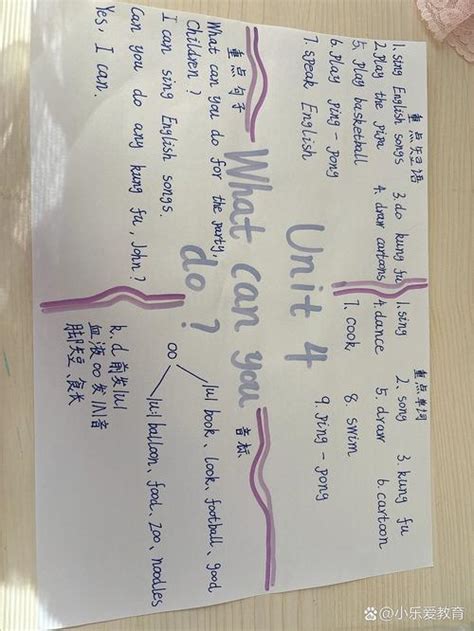 重点短语
1. sing English songs 3. do kung fu
2. Play the pipa 4. draw cartoons
5. Play basketball
6. Play ping-pong
7. speak English
重点单词
1. sing 2. song 3. kung fu
4. dance 5. draw 6. cartoon
7. cook 8. swim
9. ping-pong
Unit 4
What can you
do ?
重点句子
What can you do for the party,
Children ?
I can sing English songs.
Can you do any kung fu, John ?
Yes, I can.
音标
oo
/u/ book、look、football、good
/u/ balloon、food、zoo、noodles
k.d 前发/u/
血液 oo 发/ʌ/音
脚短、食长
@小乐爱教育